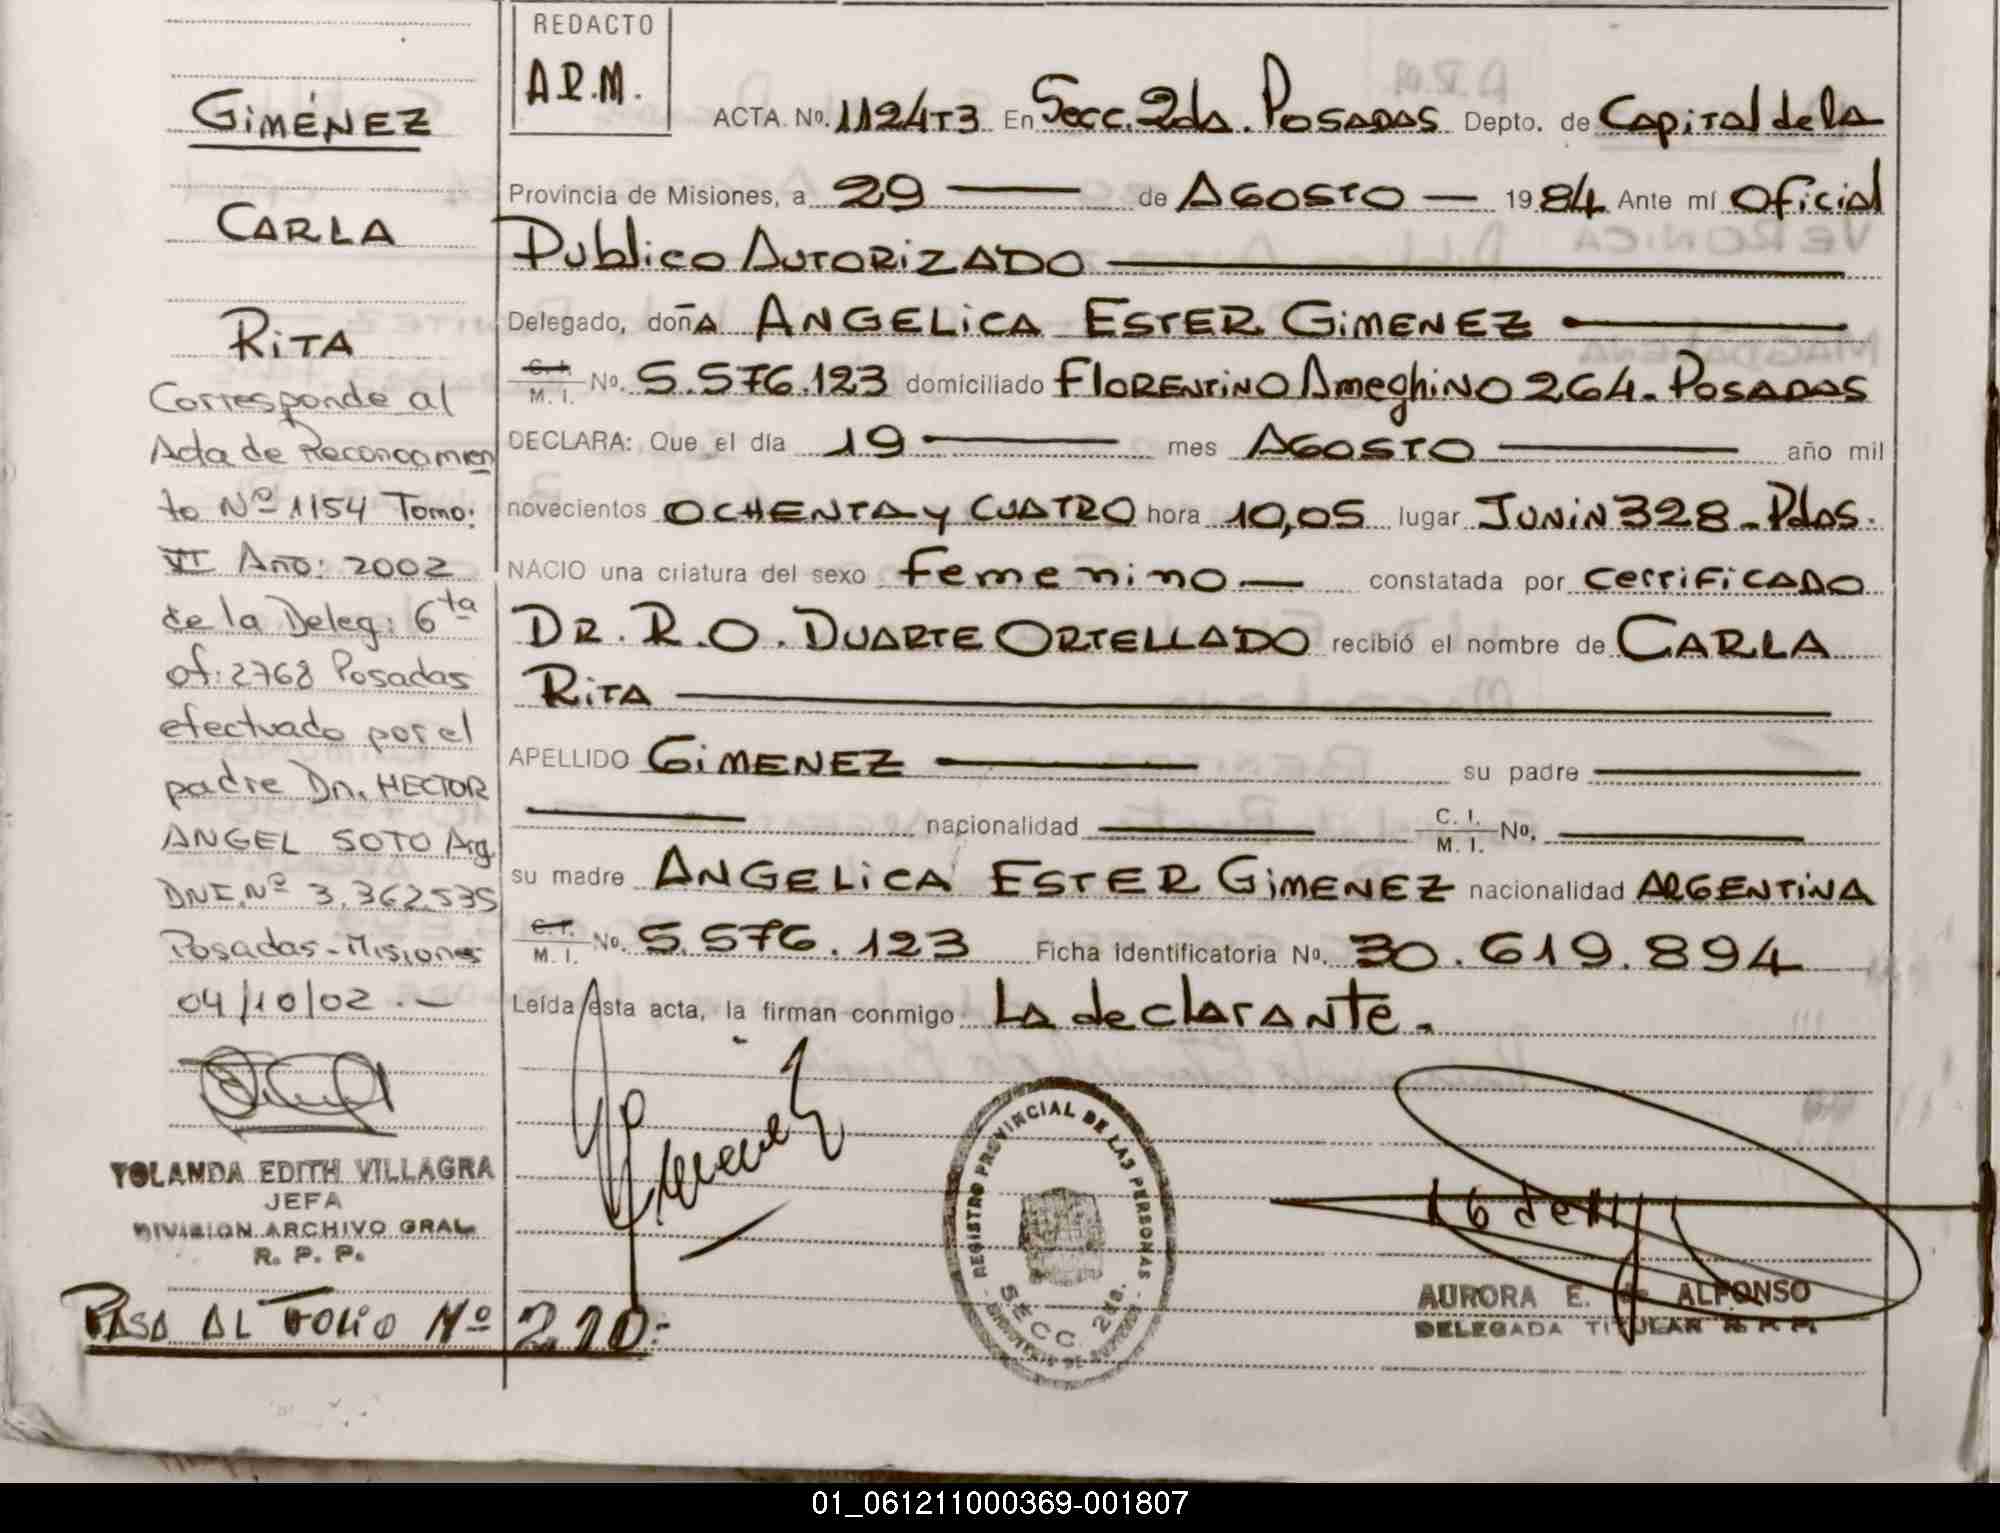 GIMÉNEZ
CARLA
RITA
Corresponde al
Acta de Reconocimien
to Nº 1154 Tomo:
VI Año: 2002
de la Deleg: 6ta
of: 2768 Posadas
efectuado por el
padre Dn. HECTOR
ANGEL SOTO Arg.
DNI. Nº 3.362.535
Posadas-Misiones
04/10/02.-
YOLANDA EDITH VILLAGRA
JEFA
DIVISION ARCHIVO GRAL
R. P. P.
PASA AL FOLIO Nº 210.-
REDACTO
A.R.M.
ACTA. No. 1124T3 En Secc. 2da. POSADAS Depto. de Capital de la
Provincia de Misiones, a 29 de AGOSTO 1984 Ante mí Oficial
Publico AUTORIZADO
Delegado, doñA ANGELICA ESTER GIMENEZ
C. I. M. I. No. 5.576.123 domiciliado FLORENTINO AmeghiNO 264. POSADAS
DECLARA: Que el día 19 mes AGOSTO año mil
novecientos OCHENTA y CUATRO hora 10,05 lugar JUNIN 328 - Pdas.
NACIO una criatura del sexo femenino constatada por CERTIFICADO
DR. R. O. DUARTE ORTELLADO recibió el nombre de CARLA
RITA
APELLIDO GIMENEZ su padre
nacionalidad C. I. M. I. No.
su madre ANGELICA ESTER GIMENEZ nacionalidad ARGENTINA
C. I. M. I. No. 5.576.123 Ficha identificatoria No. 30.619.894
Leída esta acta, la firman conmigo LA declarante.
Gimenez
REGISTRO PROVINCIAL DE LAS PERSONAS
SECC. 2da.
AURORA E. ALFONSO
DELEGADA TITULAR R. P. P.
01_061211000369-001807